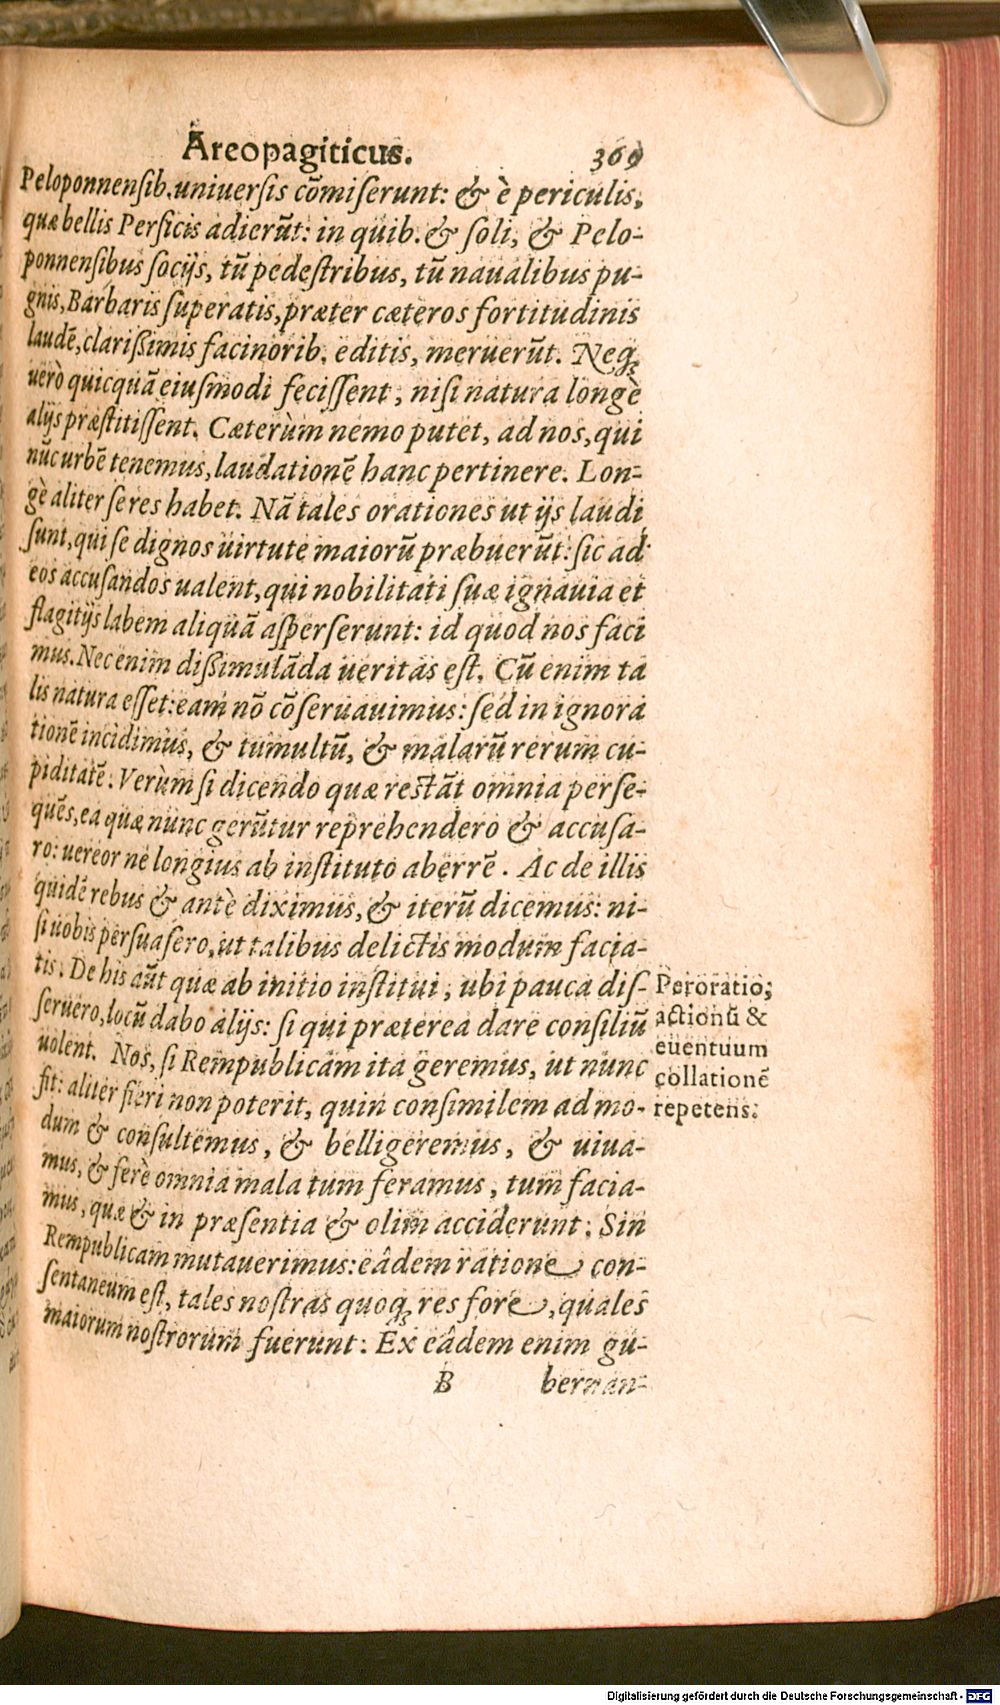 Areopagiticus. 369
Peloponnensib. uniuersis cõmiserunt: & è periculis,
quæ bellis Persicis adierũt: in quib. & soli, & Pelo-
ponnensibus socijs, tũ pedestribus, tũ naualibus pu-
gnis, Barbaris superatis, præter cæteros fortitudinis
laudẽ, clarißimis facinorib. editis, meruerũt. Neq;
uerò quicquã eiusmodi fecissent, nisi natura longè
alijs præstitissent. Cæterùm nemo putet, ad nos, qui
nũc urbẽ tenemus, laudationẽ hanc pertinere. Lon-
gè aliter se res habet. Nã tales orationes ut ijs laudi
sunt, qui se dignos uirtute maiorũ præbuerũt: sic ad
eos accusandos ualent, qui nobilitati suæ ignauia et
flagitijs labem aliquã asperserunt: id quod nos faci
mus. Nec enim dißimulãda ueritas est. Cũ enim ta
lis natura esset: eam nõ cõseruauimus: sed in ignora
tionẽ incidimus, & tumultũ, & malarũ rerum cu-
piditatẽ. Verùm si dicendo quæ restãt omnia perse-
quẽs, ea quæ nunc gerũtur reprehendero & accusa-
ro: uereor ne longius ab instituto aberrẽ. Ac de illis
quidẽ rebus & antè diximus, & iterũ dicemus: ni-
si uobis persuasero, ut talibus delictis modum facia-
tis. De his aũt quæ ab initio institui, ubi pauca dis-
seruero, locũ dabo alijs: si qui præterea dare consiliũ
uolent. Nos, si Rempublicam ita geremus, ut nunc
fit: aliter fieri non poterit, quin consimilem ad mo-
dum & consultemus, & belligeremus, & uiua-
mus, & ferè omnia mala tum feramus, tum facia-
mus, quæ & in præsentia & olim acciderunt: Sin
Rempublicam mutauerimus: eâdem ratione con-
sentaneum est, tales nostras quoq; res fore, quales
maiorum nostrorum fuerunt: Ex eâdem enim gu-
B bernan-
Peroratio,
actionũ &
euentuum
collationẽ
repetens.
Digitalisierung gefördert durch die Deutsche Forschungsgemeinschaft - DFG